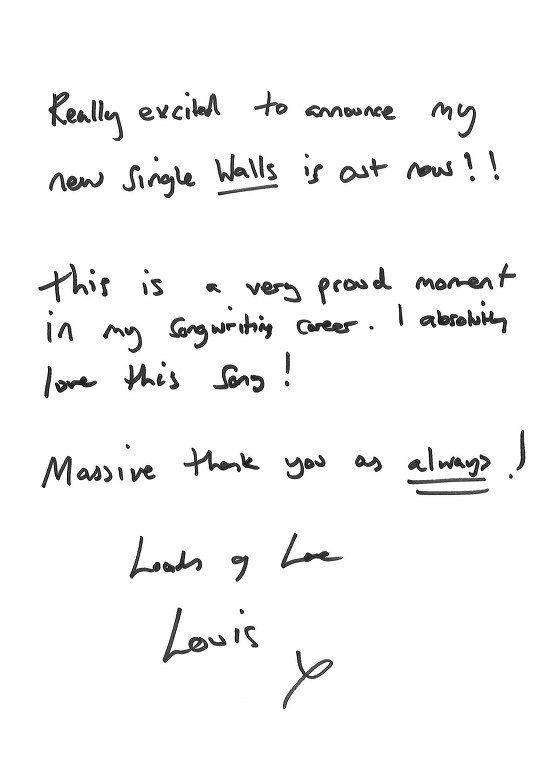 Really excited to announce my
new single Walls is out now!!
this is a very proud moment
in my songwriting career. I absolutely
love this song!
Massive thank you as always!
Loads of Love
Louis
x